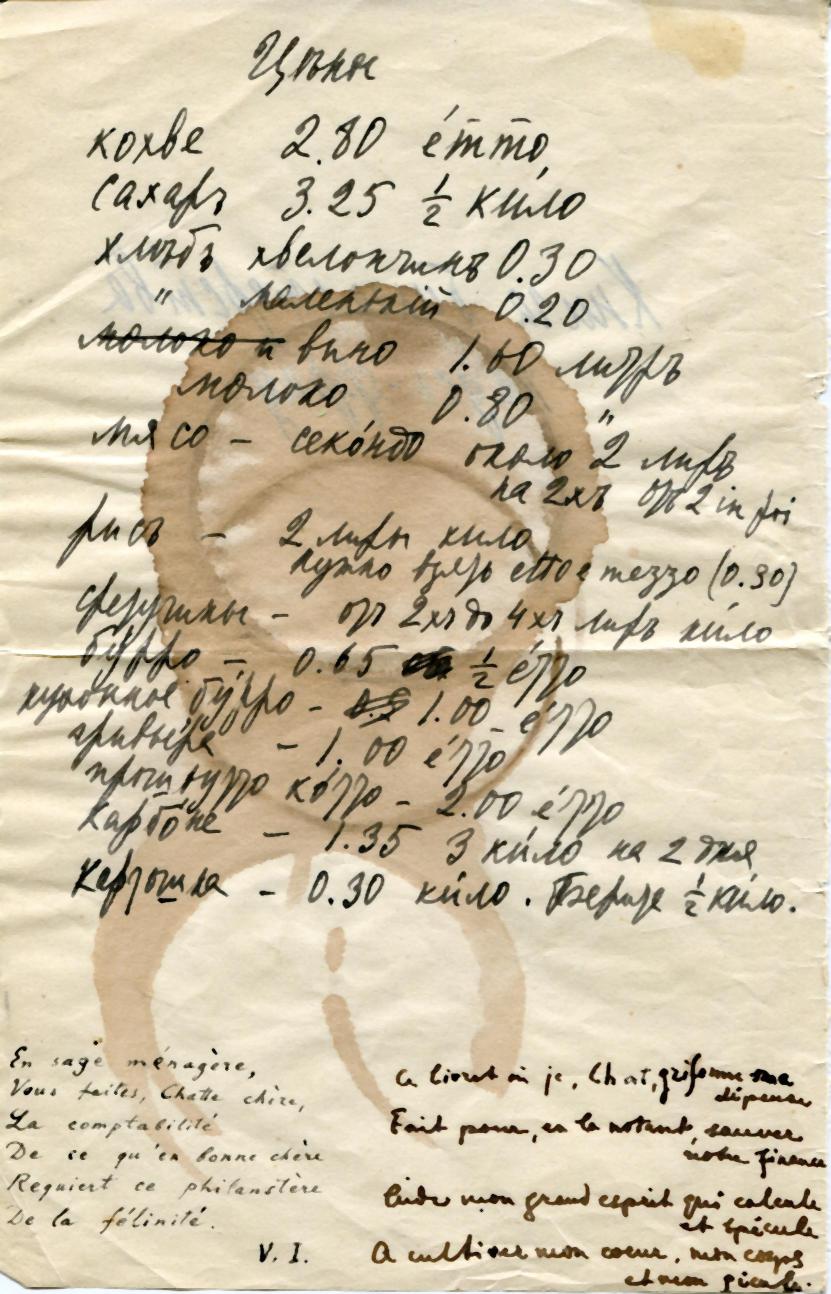 Цѣны
кохве 2.80 е́тто
сахаръ 3.25 ½ ки́ло
хлѣбъ 0.30
" маленький 0.20
молоко и вино 1.60 литръ
молоко 0.80 "
мясо – секо́ндо около 2 лиръ
на 2хъ отъ 2 in poi
рисъ – 2 лиры кило
нужно взять etto e mezzo (0.30)
– отъ 2хъ до 4хъ лиръ ки́ло
бу́рро – 0.65 ½ е́тто
кухонное бу́рро – 1.00 е́тто
гривье́ра – 1.00 е́тто
прошутто ко́тто – 2.00 е́тто
карбо́не – 1.35 3 ки́ло на 2 дня
картошка – 0.30 ки́ло. Берите ½ ки́ло.
En sage ménagère,
Vous faites, Chatte chère,
La comptabilité
De ce qu'en bonne chère
Requiert ce philanstère
De la félinité.
V. I.
Ce livret où je, Chat, griffonne ma
dépense
Fait pour, en la notant, sauver
notre finance
mon grand esprit qui calcule
et spécule
A cultiver mon coeur, mon corps
et mon